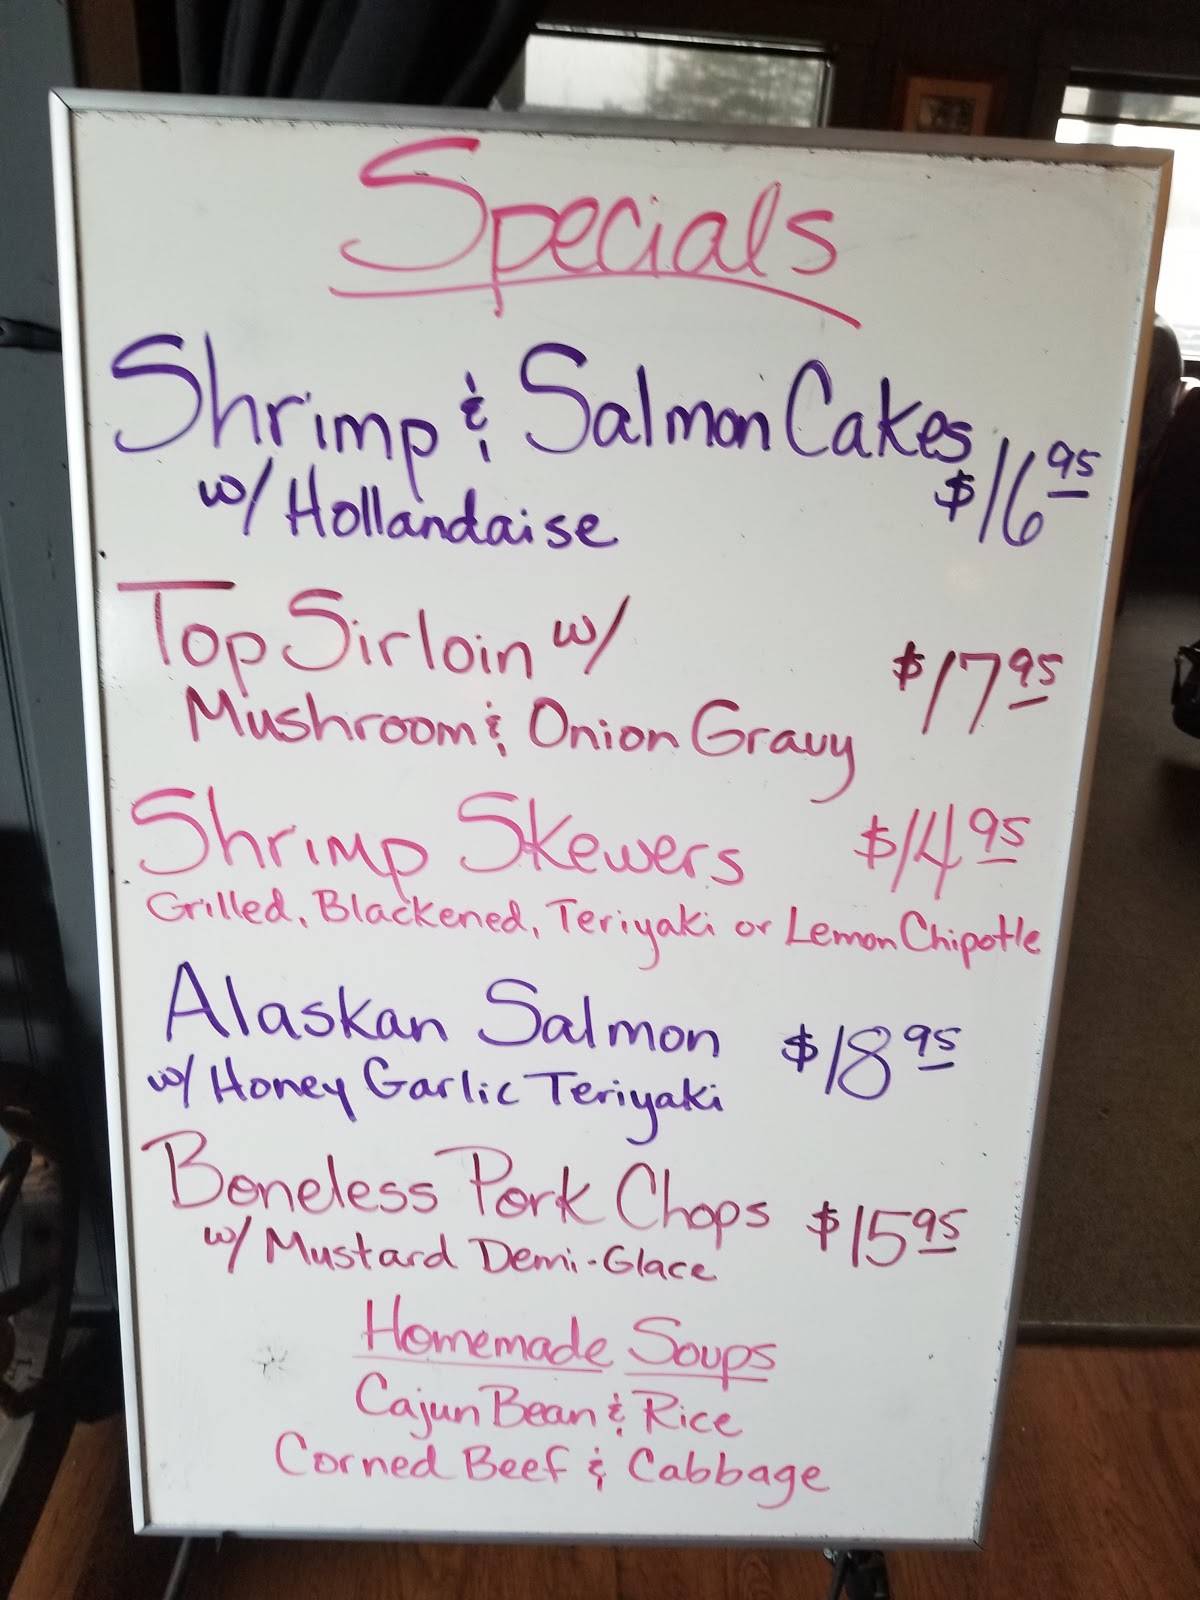 Specials
Shrimp & Salmon Cakes
w/ Hollandaise $16.95
Top Sirloin w/
Mushroom & Onion Gravy $17.95
Shrimp Skewers $14.95
Grilled, Blackened, Teriyaki or Lemon Chipotle
Alaskan Salmon $18.95
w/ Honey Garlic Teriyaki
Boneless Pork Chops $15.95
w/ Mustard Demi-Glace
Homemade Soups
Cajun Bean & Rice
Corned Beef & Cabbage